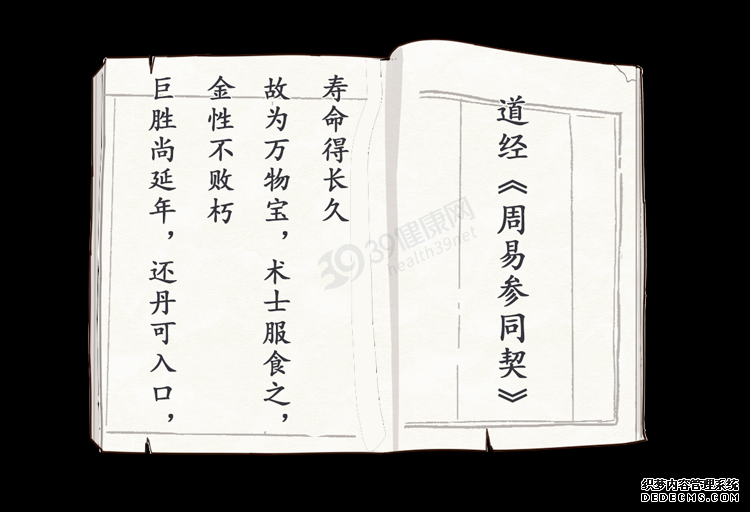 道经《周易参同契》
巨胜尚延年，还丹可入口，
金性不败朽
故为万物宝，术士服食之，
寿命得长久
39 39健康网
health39net
织梦内容管理系统
DEDECMS.COM